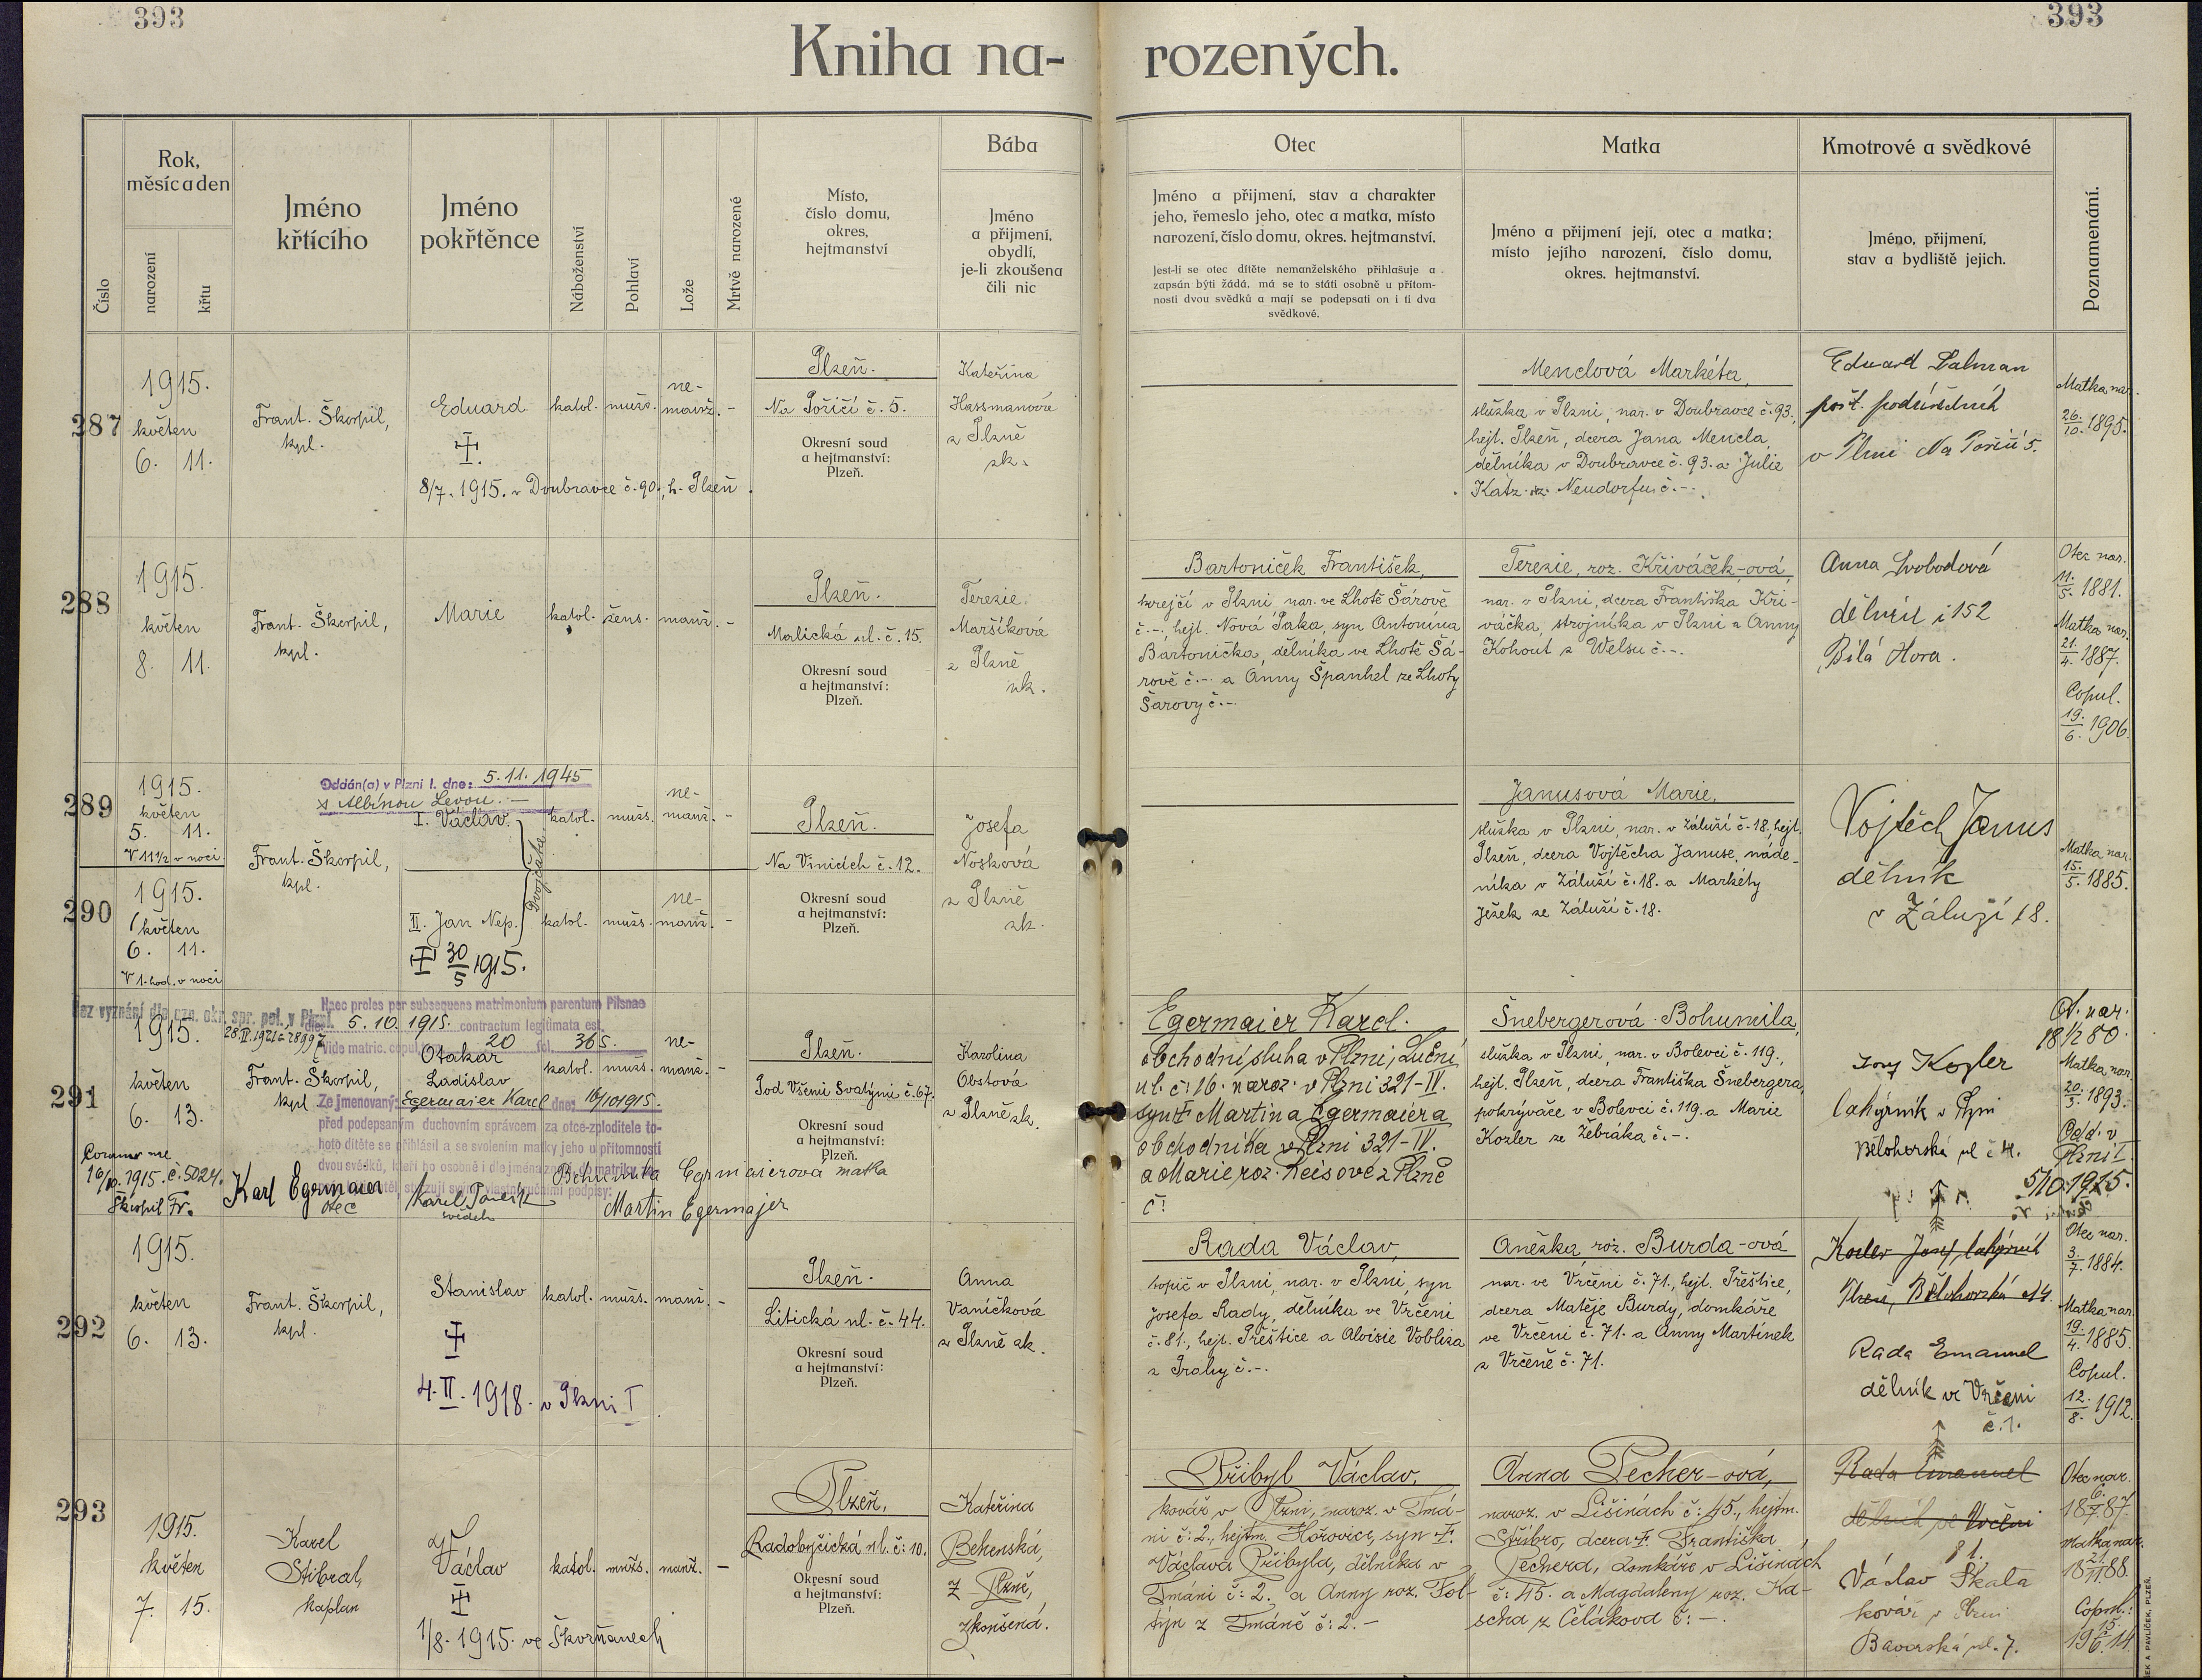 393
393
Kniha na-
rozených.
Číslo
Rok,
měsíc a den
narození
křtu
Jméno
křtícího
Jméno
pokřtěnce
Náboženství
Pohlaví
Lože
Mrtvě narozené
Místo,
číslo domu,
okres,
hejtmanství
Bába
Jméno
a přijmení,
obydlí,
je-li zkoušena
čili nic
Otec
Jméno a přijmení, stav a charakter
jeho, řemeslo jeho, otec a matka, místo
narození, číslo domu, okres. hejtmanství.
Jest-li se otec dítěte nemanželského přihlašuje a
zapsán býti žádá, má se to státi osobně u přítom-
nosti dvou svědků a mají se podepsati on i ti dva
svědkové.
Matka
Jméno a přijmení její, otec a matka;
místo jejího narození, číslo domu,
okres. hejtmanství.
Kmotrové a svědkové
Jméno, přijmení,
stav a bydliště jejich.
Poznamenání.
287
1915.
květen
6. 11.
Frant. Škorpil,
kpl.
Eduard
8/7. 1915. v Doubravce č. 90., h. Plzeň.
katol.
mužs.
ne-
manž.
-
Plzeň.
Na Poříčí č. 5.
Okresní soud
a hejtmanství:
Plzeň.
Kateřina
Hassmanová
z Plzně
zk.
Menclová Markéta,
služka v Plzni, nar. v Doubravce č. 93.,
hejt. Plzeň, dcera Jana Mencla,
dělníka v Doubravce č. 93. a Julie
Katz z Neudorfu č. -.
Eduard Salman
pošt. podúředník
v Plzni Na Poříčí 5.
Matka nar.
26./10. 1895.
288
1915.
květen
8. 11.
Frant. Škorpil,
kpl.
Marie
katol.
žens.
manž.
-
Plzeň.
Malická ul. č. 15.
Okresní soud
a hejtmanství:
Plzeň.
Terezie
Maršíková
z Plzně
zk.
Bartoníček František,
krejčí v Plzni, nar. ve Lhotě Šárově
č. -., hejt. Nová Paka, syn Antonína
Bartoníčka, dělníka ve Lhotě Šá-
rově č. - a Anny Španhel ze Lhoty
Šárovy č. -
Terezie, roz. Křiváček-ová,
nar. v Plzni, dcera Františka Kři-
váčka, strojníka v Plzni a Anny
Kohout z Welsu č. -.
Anna Svobodová
dělnice č 152
Bílá Hora.
Otec nar.
11./5. 1881.
Matka nar.
21./4. 1887.
Copul.
19./6. 1906.
289
1915.
květen
5. 11.
V 11 1/2 v noci
Oddán(a) v Plzni I. dne: 5.11.1945
s Albínou Levou. -
I. Václav.
Dvojčata
katol.
mužs.
ne-
manž.
-
Frant. Škorpil,
kpl.
290
1915.
květen
6. 11.
V 1. hod. v noci
II. Jan Nep.
30/5 1915.
katol.
mužs.
ne-
manž.
-
Plzeň.
Na Vinicích č. 12.
Okresní soud
a hejtmanství:
Plzeň.
Josefa
Nosková
z Plzně
zk.
Janusová Marie,
služka v Plzni, nar. v Záluží č. 18., hejt.
Plzeň, dcera Vojtěcha Januse, náde-
níka v Záluží č. 18. a Markéty
Ježek ze Záluží č. 18.
Vojtěch Janus
dělník
v Záluží 18.
Matka nar.
15./5. 1885.
291
Bez vyznání dle ozn. okr. spr. pol. v Plzni
1915.
květen
6. 13.
Coram me
16/10. 1915. č. 5024.
Škorpil Fr.
Frant. Škorpil,
kpl.
Haec proles per subsequens matrimonium parentum Pilsnae
die 5. 10. 1915. contractum legitimata est.
Vide matric. copul. 20 fol. 365.
Otakar
Ladislav
katol.
mužs.
ne-
manž.
-
Ze jmenovaný: Egermaier Karel dne: 16/10 1915.
před podepsaným duchovním správcem za otce-zploditele to-
hoto dítěte se přihlásil a se svolením matky jeho u přítomnosti
dvou svědků, kteří ho osobně i dle jména
stvrzují svými vlastnoručními podpisy:
Karl Egermaier
otec
Karel
svědek
Bohumila Egrmaierová matka
Martin Egermajer
Plzeň.
Pod Všemi Svatými č. 67.
Okresní soud
a hejtmanství:
Plzeň.
Karolina
Obstová
z Plzně zk.
Egermaier Karel.
obchodní sluha v Plzni, Luční
ul. č: 16. naroz. v Plzni 321-IV.
syn † Martina Egermaiera
obchodníka v Plzni 321-IV.
a Marie roz. Reisové z Plzně
č!
Šnebergerová Bohumila,
služka v Plzni, nar. v Bolevci č. 119.,
hejt. Plzeň, dcera Františka Šnebergera,
pokrývače v Bolevci č. 119. a Marie
Kozler ze Žebráka č. -.
Josef Kozler
lahýrník v Plzni
Bělohorská ul č 4.
Ot. nar.
18 1/2 80.
Matka nar.
20./3. 1893.
Odd. v
Plzni I.
5/10. 1915.
292
1915.
květen
6. 13.
Frant. Škorpil,
kpl.
Stanislav
4. II. 1918. v Plzni I
katol.
mužs.
manž.
-
Plzeň.
Litická ul. č. 44.
Okresní soud
a hejtmanství:
Plzeň.
Anna
Vaníčková
z Plzně zk.
Rada Václav,
topič v Plzni, nar. v Plzni, syn
Josefa Rady, dělníka ve Vrčeni
č. 81., hejt. Přeštice a Aloisie Voblisa
z Prahy č. -.
Anežka, roz. Burda-ová
nar. ve Vrčeni č. 71., hejt. Přeštice,
dcera Matěje Burdy, domkáře
ve Vrčeni č. 71. a Anny Martínek
z Vrčeně č. 71.
Kozler Josef, lahýrník
Plzeň, Bělohorská č 4.
Rada Emanuel
dělník ve Vrčeni
č. 1.
Otec nar.
3./7. 1884.
Matka nar.
19./4. 1885.
Copul.
12./8. 1912.
293
1915.
květen
7. 15.
Karel
Stibral,
kaplan
Václav
1/8. 1915. ve Škvrňanech
katol.
mužs.
manž.
-
Plzeň,
Radobyčická ul. č: 10.
Okresní soud
a hejtmanství:
Plzeň.
Kateřina
Behenská,
z Plzně,
zkoušená.
Přibyl Václav,
kovář v Plzni, naroz. v Tmá-
ni č: 2., hejtm. Hořovice, syn †.
Václava Přibyla, dělníka v
Tmáni č: 2. a Anny roz. Fol-
týn z Tmáně č: 2. -
Anna Pecher-ová,
naroz. v Lišinách č: 45., hejtm.
Stříbro, dcera †. Františka
Pechera, domkáře v Lišinách
č: 45. a Magdaleny roz. Ka-
scha z Čelákova č: -.
Rada Emanuel
dělník ve Vrčeni
81.
Václav Skala
kovář v Plzni
Bavorská ul. 7.
Otec nar.
Matka nar.
Copul.: